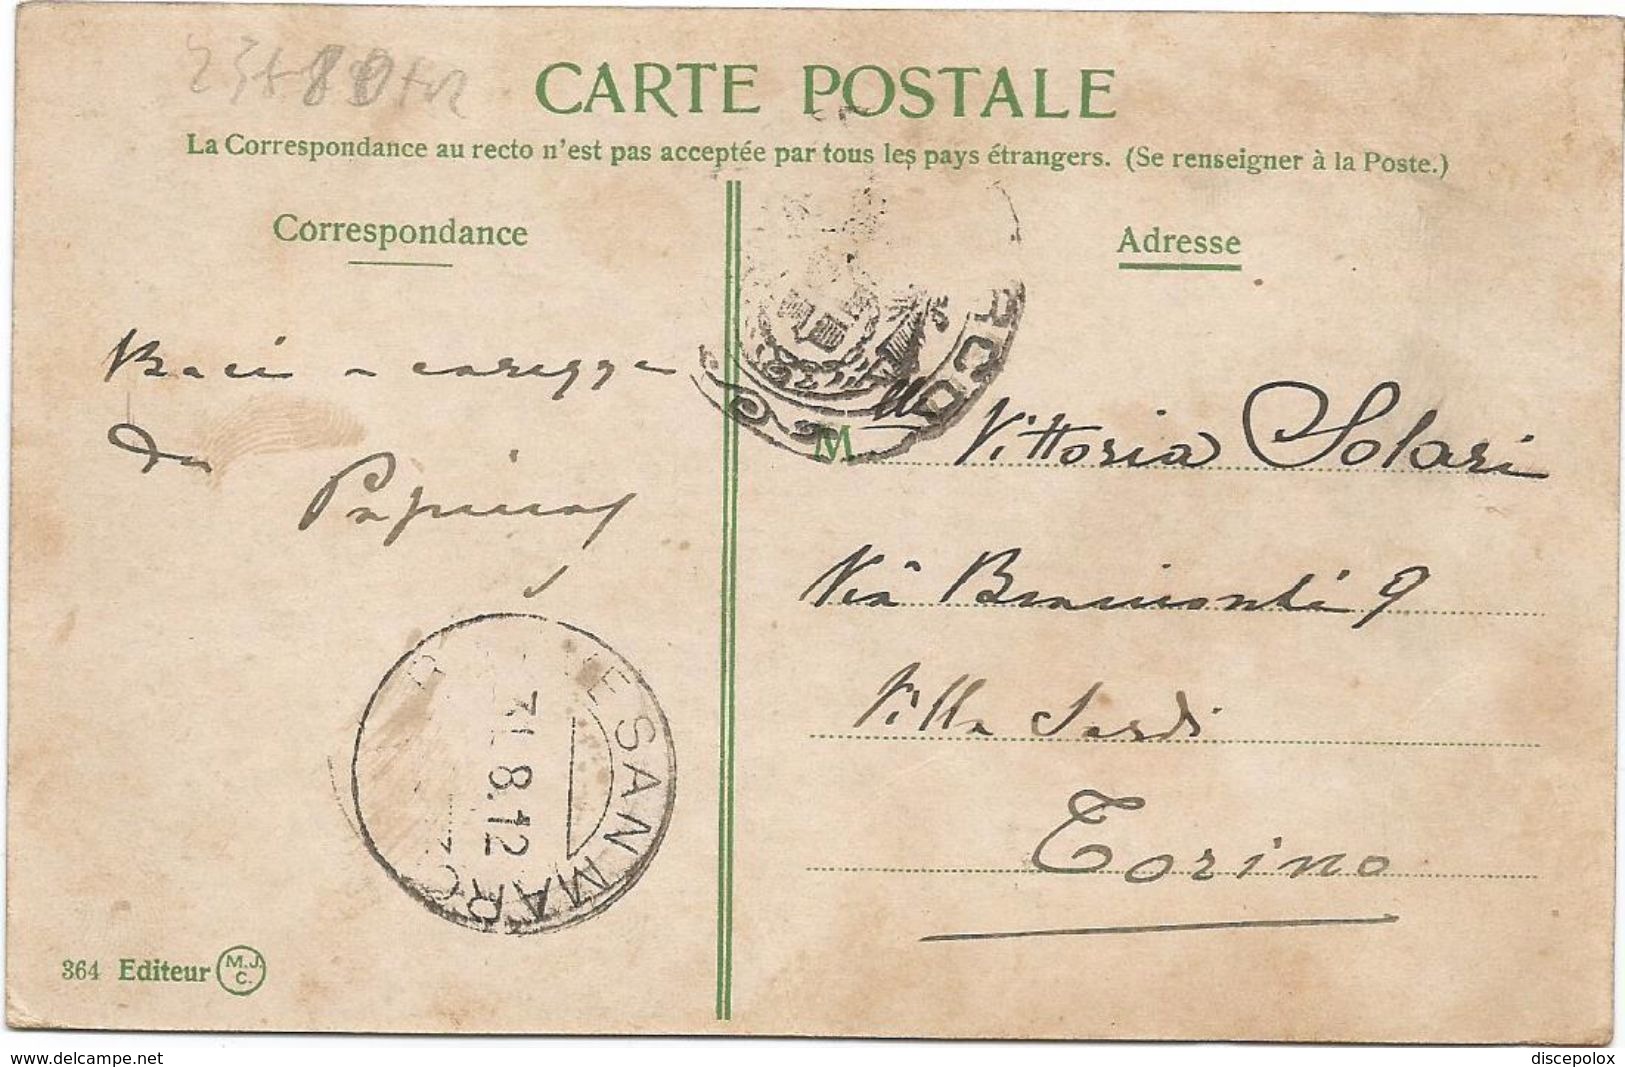 CARTE POSTALE
La Correspondance au recto n'est pas acceptée par tous les pays étrangers. (Se renseigner à la Poste.)
Correspondance
Adresse
RCO
Baci e carezze
da
Mlle Vittoria Solari
Via 9
Villa Sardi
Torino
E SAN MARCO
31.8.12
364 Editeur M.J.C.
www.delcampe.net
discepolox